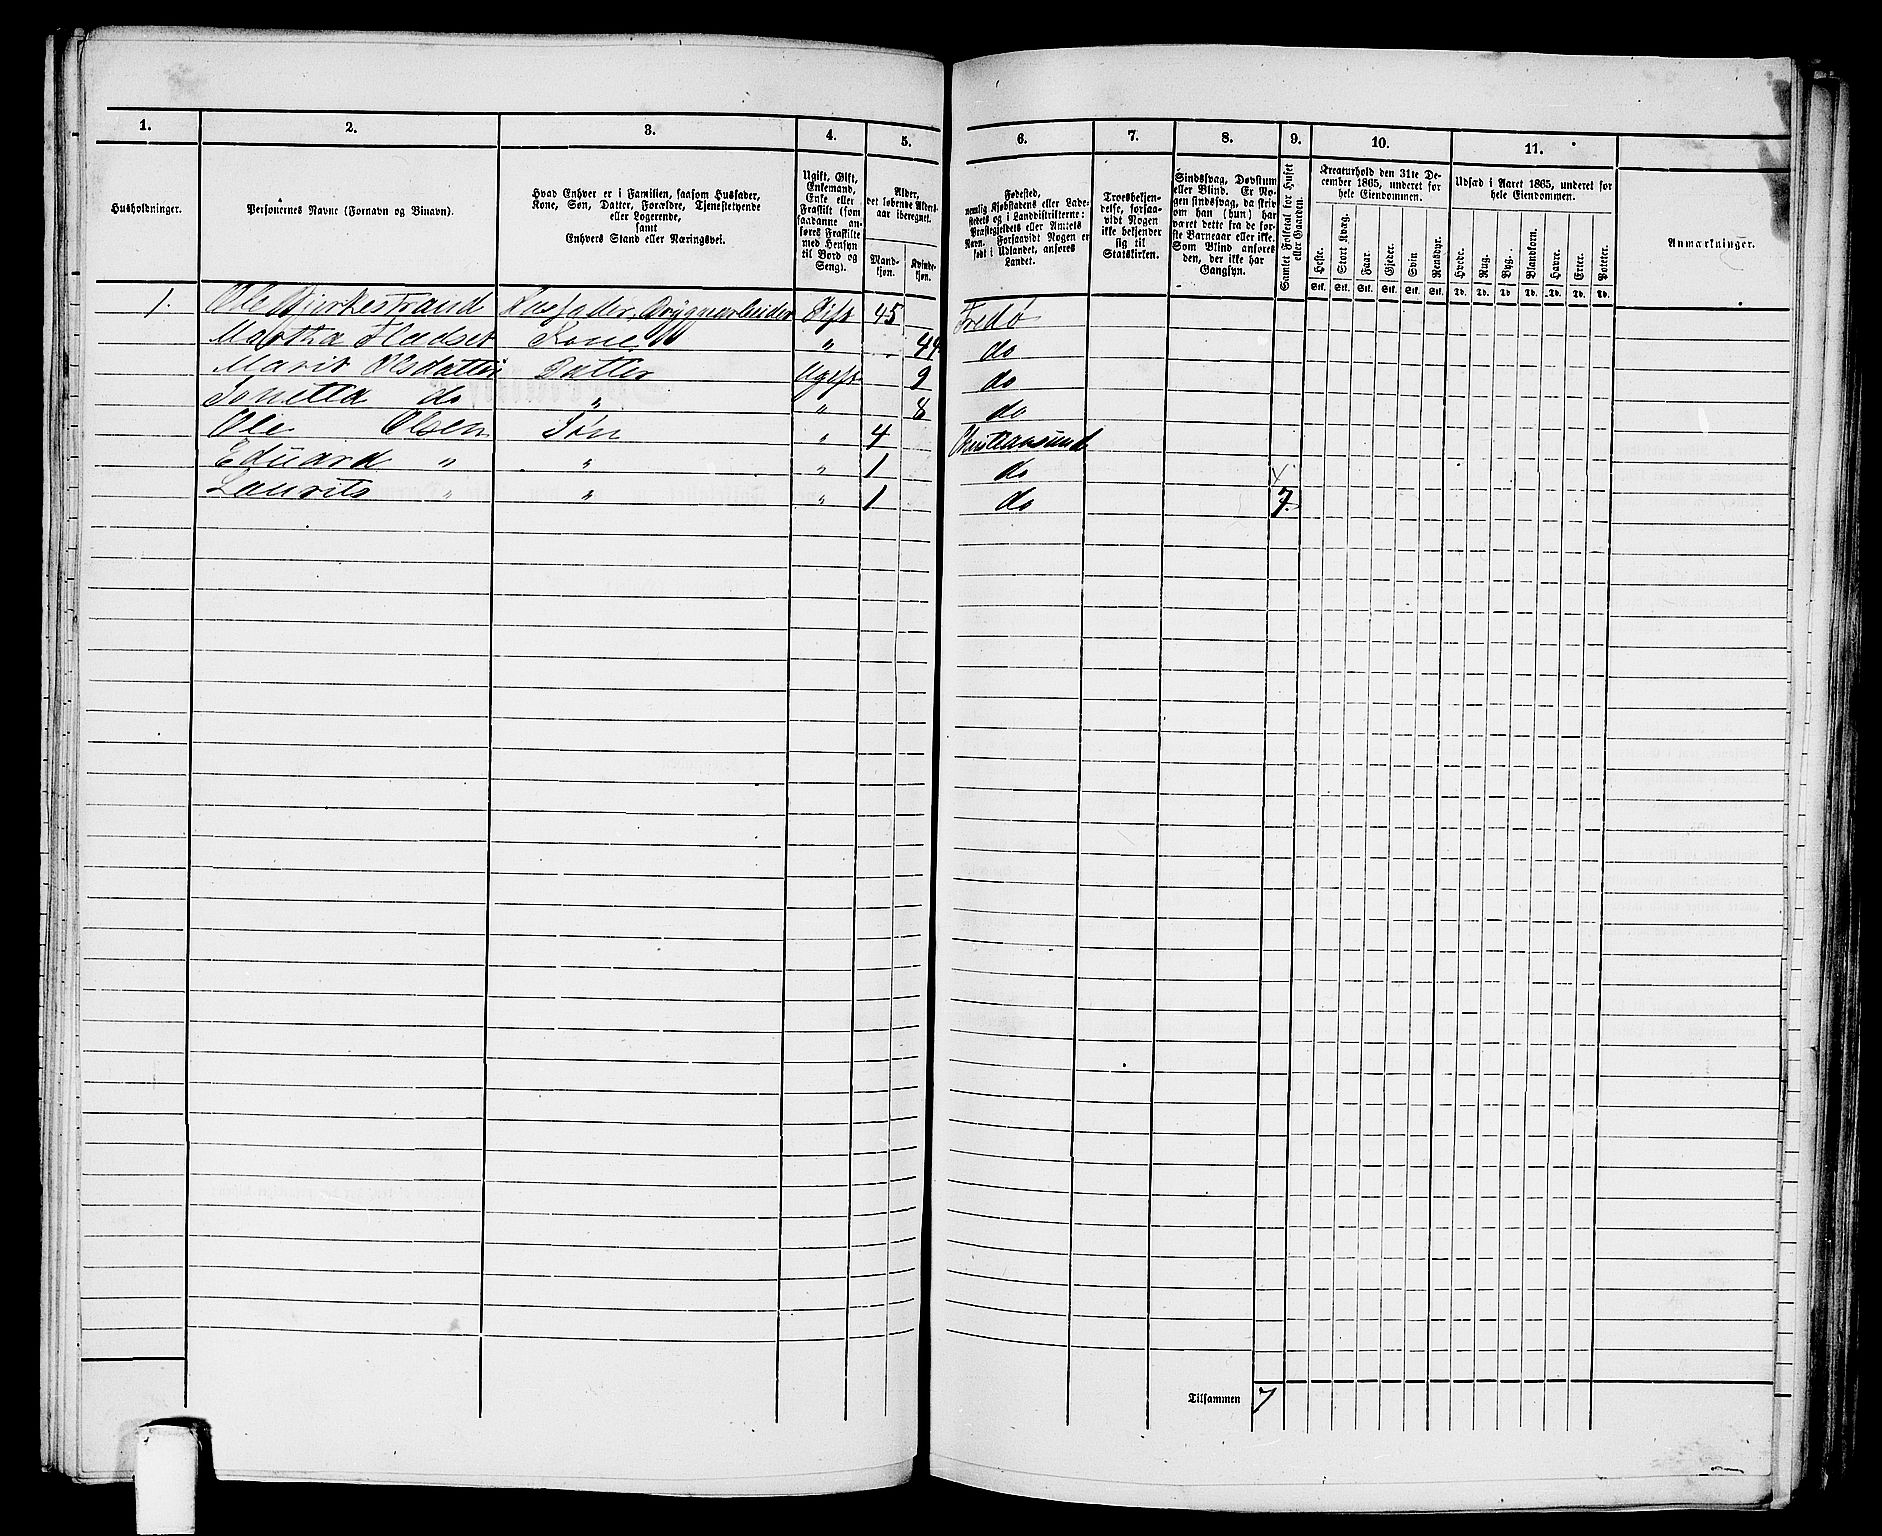 1. 2. 3. 4. 5. 6. 7. 8. 9. 10. 11.
Husholdninger.
Personernes Navne (Fornavn og Binavn).
Hvad Enhver er i Familien, saasom Husfader,
Kone, Søn, Datter, Forældre, Tjenestetyende
eller Logerende,
samt
Enhvers Stand eller Næringsvei.
Ugift, Gift,
Enkemand,
Enke eller
Fraskilt (som
saadanne an-
føres Fraskilte
med Hensyn
til Bord og
Seng).
Alder,
det løbende Alders-
aar iberegnet.
Mand-
kjøn.
Kvinde-
kjøn.
Fødested,
nemlig Kjøbstadens eller Lade-
stedets og i Landdistrikterne:
Præstegjeldets eller Amtets
Navn. Forsaavidt Nogen er
født i Udlandet, anføres
Landet.
Troesbekjen-
delse, forsaa-
vidt Nogen
ikke bekjender
sig til
Statskirken.
Sindssvag, Døvstum
eller Blind. Er No-
gen sindssvag, da skriv
om han (hun) har
været dette fra de før-
ste Barneaar eller ikke.
Som Blind anføres
den, der ikke har
Gangsyn.
Samlet Folketal for Huset
eller Gaarden.
Kreaturhold den 31te De-
cember 1865, underet for
hele Eiendommen.
Heste. Stort Kvæg. Faar. Gjeder. Svin Rensdyr.
Stk. Stk. Stk. Stk. Stk. Stk.
Udsæd i Aaret 1865, underet for
hele Eiendommen.
Hvede. Rug. Byg. Blandkorn. Havre. Erter. Poteter.
Td. Td. Td Td. Td. Td. Td.
Anmærkninger.
1. Ole Bjerkestrand Husfader, Bryggearbeider Gift 45 Fredø
Martha Fladset Kone " 44 do
Marit Olsdatter Datter Ugift 9 do
do " " 8 do
Ole Olsen Søn " 4 Christiansund
Eduard " " " 1 do
Laurits " " " 1 do 7.
Tilsammen 7